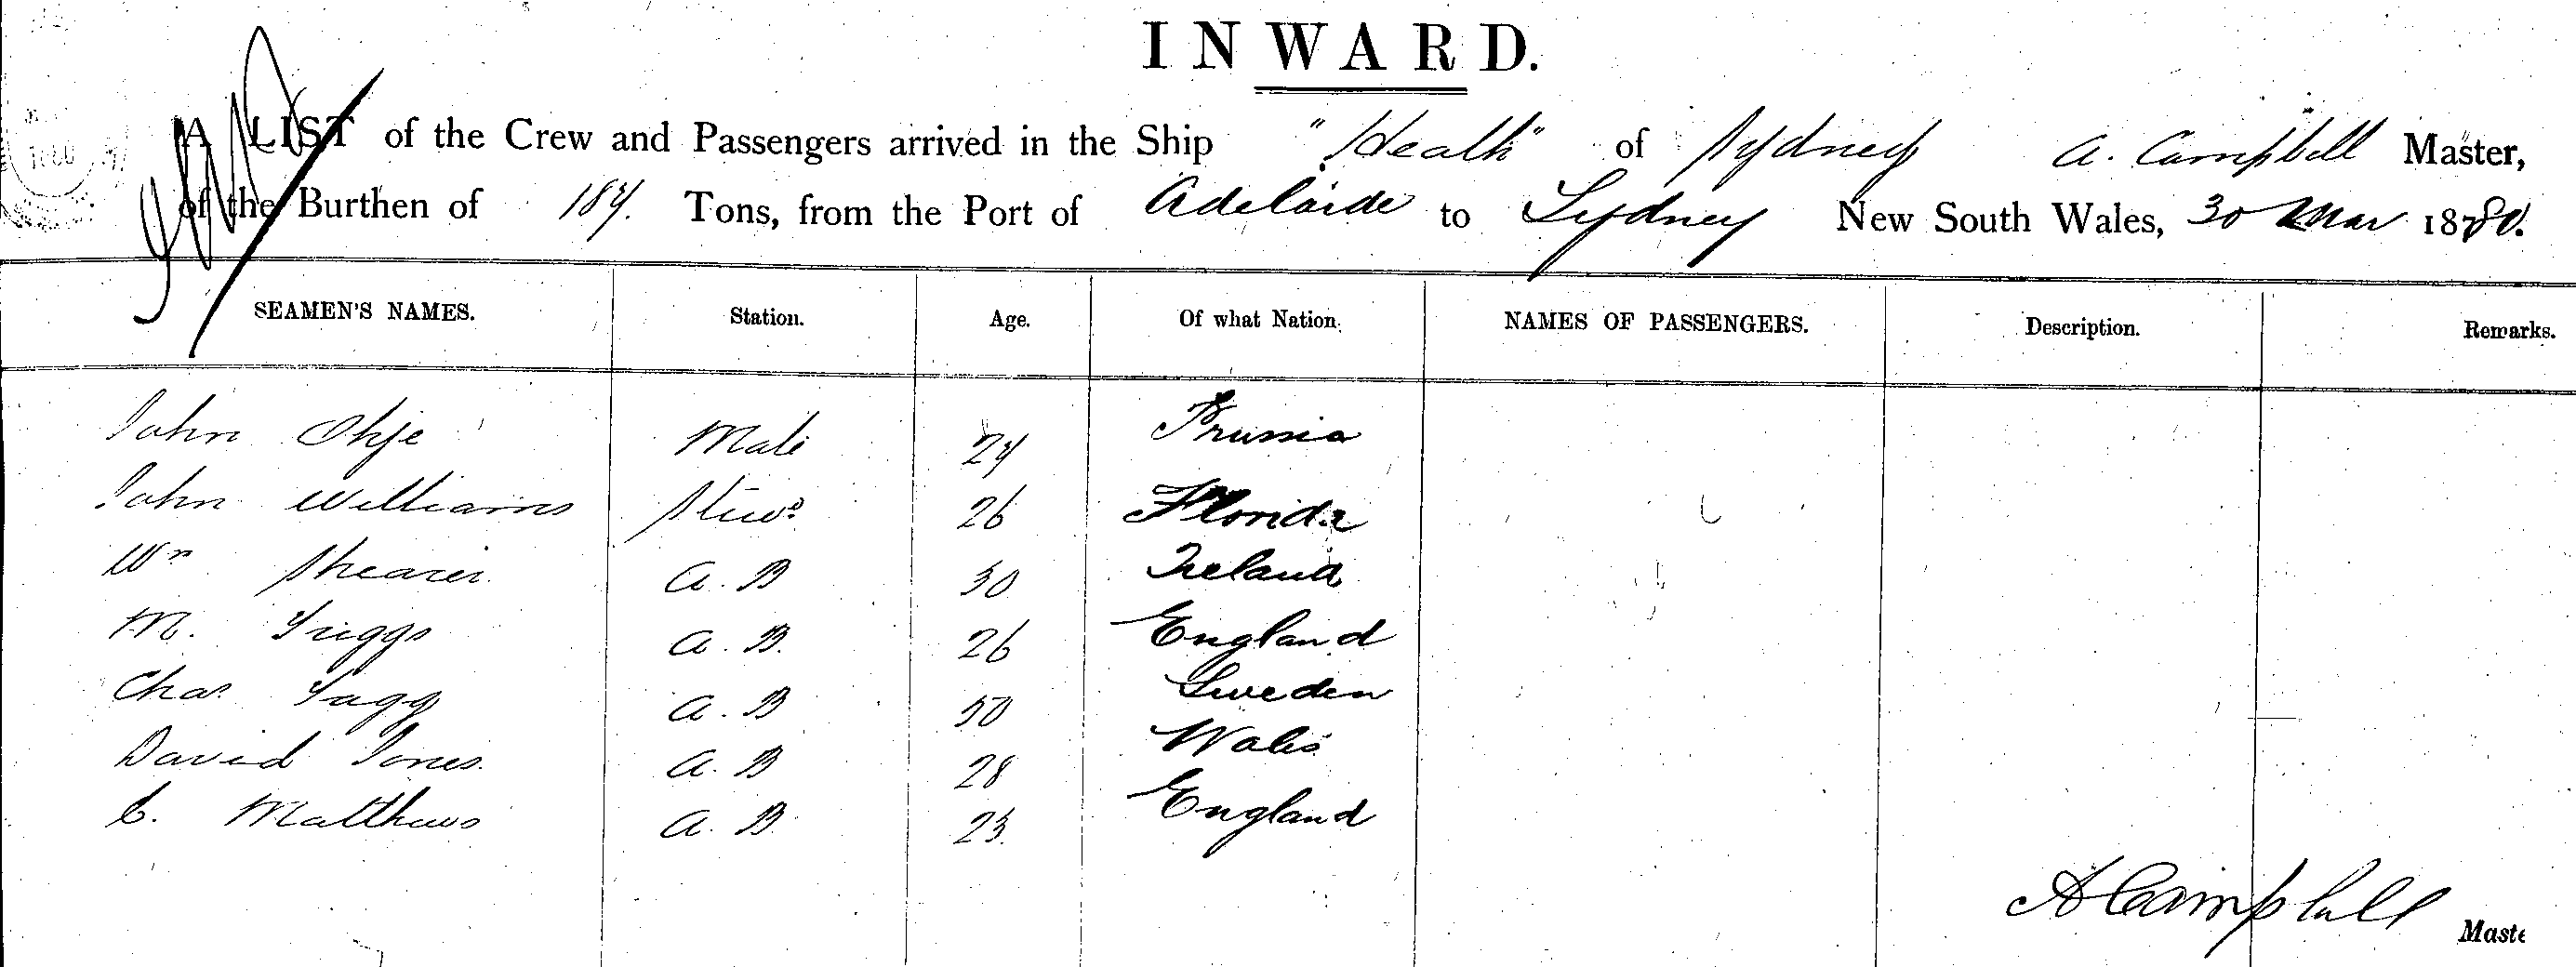 INWARD.
A LIST of the Crew and Passengers arrived in the Ship "Heath" of Sydney A. Campbell Master,
of the Burthen of 184. Tons, from the Port of Adelaide to Sydney New South Wales, 30 Mar 1880.
SEAMEN'S NAMES. Station. Age. Of what Nation. NAMES OF PASSENGERS. Description. Remarks.
John Ohje Mate 24 Prussia
John Williams Stewd 26 Florida
Wm Shearer A. B 30 Ireland
M. Triggs A. B. 26 England
Chas Tagg A. B 50 Sweden
David Jones. A. B 28 Wales
C. Matthews A. B. 23. England
A Campbell Maste